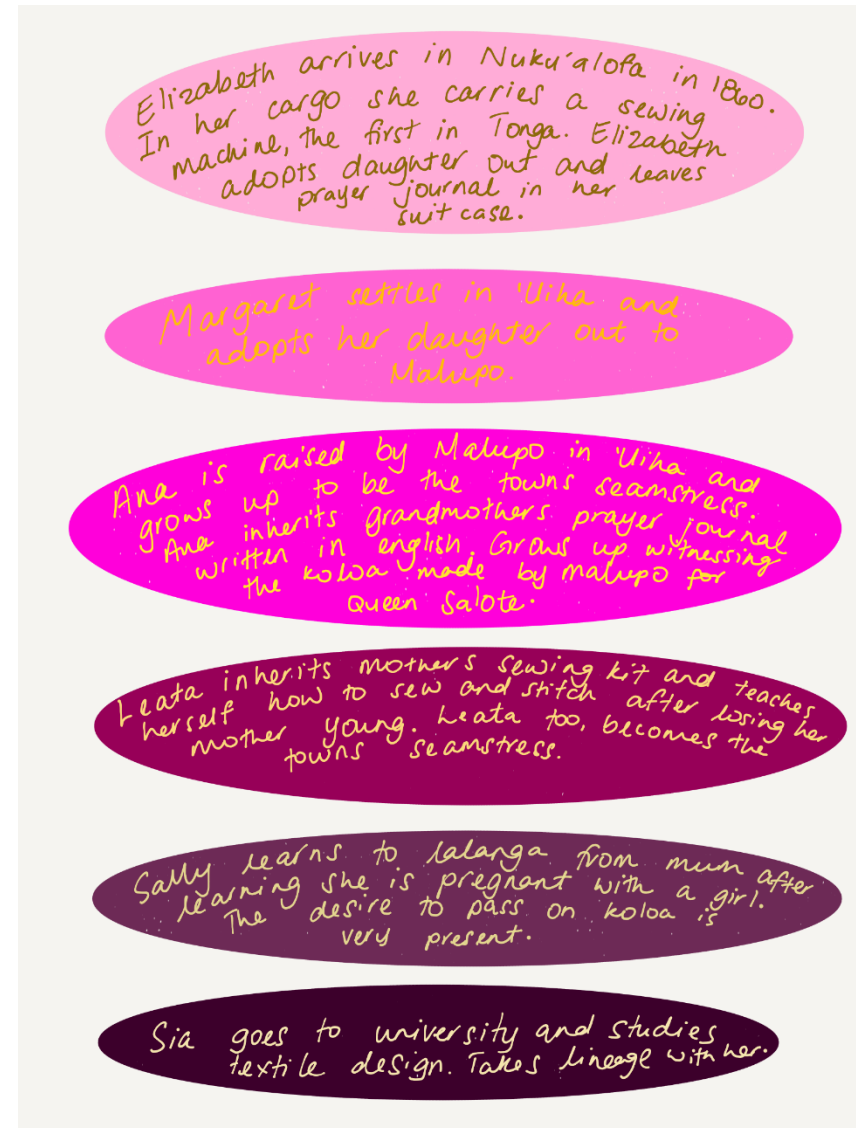 Elizabeth arrives in Nuku'alofa in 1860.
In her cargo she carries a sewing
machine, the first in Tonga. Elizabeth
adopts daughter out and leaves
prayer journal in her
suitcase.
Margaret settles in 'Uiha and
adopts her daughter out to
Malupo.
Ana is raised by Malupo in 'Uiha and
grows up to be the towns seamstress.
Ana inherits grandmothers prayer journal
written in english. Grows up witnessing
the koloa made by malupo for
Queen Salote.
Leata inherits mothers sewing kit and teaches
herself how to sew and stitch after losing her
mother young. Leata too, becomes the
towns seamstress.
Sally learns to lalanga from mum after
learning she is pregnant with a girl.
The desire to pass on koloa is
very present.
Sia goes to university and studies
textile design. Takes lineage with her.